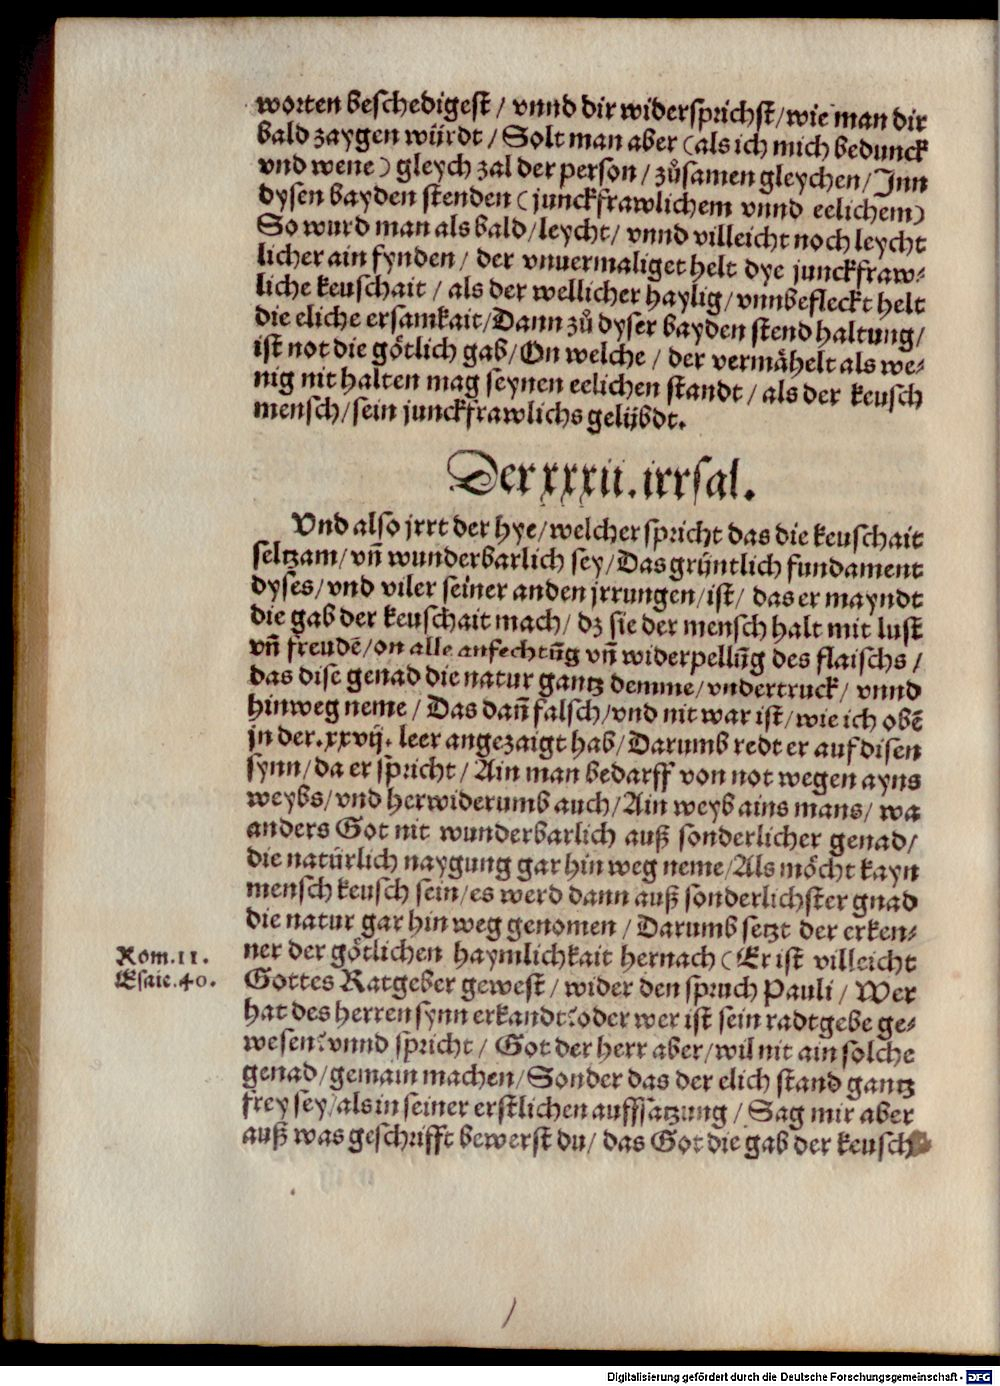 worten beschedigest / vnnd dir widersprichst / wie man dir
bald zaygen würdt / Solt man aber (als ich mich bedunck
vnd wene) gleych zal der person / zůsamen gleychen / Inn
dysen bayden stenden (junckfrawlichem vnnd eelichem)
So wurd man als bald / leycht / vnnd villeicht noch leycht
licher ain fynden / der vnuermaliget helt dye junckfraw⸗
liche keuschait / als der wellicher haylig / vnnbefleckt helt
die eliche ersamkait / Dann zů dyser bayden stend haltung /
ist not die götlich gab / On welche / der vermähelt als we⸗
nig nit halten mag seynen eelichen standt / als der keusch
mensch / sein junckfrawlichs gelübdt.
Der xxxii. irrsal.
Vnd also jrrt der hye / welcher spricht das die keuschait
seltzam / vñ wunderbarlich sey / Das grüntlich fundament
dyses / vnd viler seiner anden jrrungen / ist / das er mayndt
die gab der keuschait mach / dz sie der mensch halt mit lust
vñ freudē / on alle anfechtũg vñ widerpellũg des flaischs /
das dise genad die natur gantz demme / vndertruck / vnnd
hinweg neme / Das dañ falsch / vnd nit war ist / wie ich obē
jn der .xxvij. leer angezaigt hab / Darumb redt er auf disen
synn / da er spricht / Ain man bedarff von not wegen ayns
weybs / vnd herwiderumb auch / Ain weyb ains mans / wa
anders Got nit wunderbarlich auß sonderlicher genad /
die natürlich naygung gar hin weg neme / Als möcht kayn
mensch keusch sein / es werd dann auß sonderlichster gnad
die natur gar hin weg genomen / Darumb setzt der erken⸗
ner der götlichen haymlichkait hernach (Er ist villeicht
Rom.11.
Esaie.40.
Gottes Ratgeber gewest / wider den spruch Pauli / Wer
hat des herren synn erkandt? oder wer ist sein radtgebe ge⸗
wesen? vnnd spricht / Got der herr aber / wil nit ain solche
genad / gemain machen / Sonder das der elich stand gantz
frey sey / als in seiner erstlichen aufffsatzung / Sag mir aber
auß was geschrifft bewerst du / das Got die gab der keusch
Digitalisierung gefördert durch die Deutsche Forschungsgemeinschaft - DFG